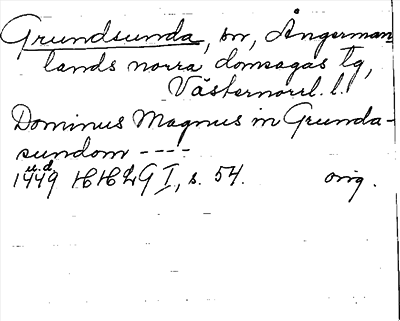 Grundsunda, sn, Ångerman-
lands norra domsagas tg,
Västernorrl. l.
Dominus Magnus in Grunda-
sundom ----
u.d.
1449 HHLG I, s. 54. orig.